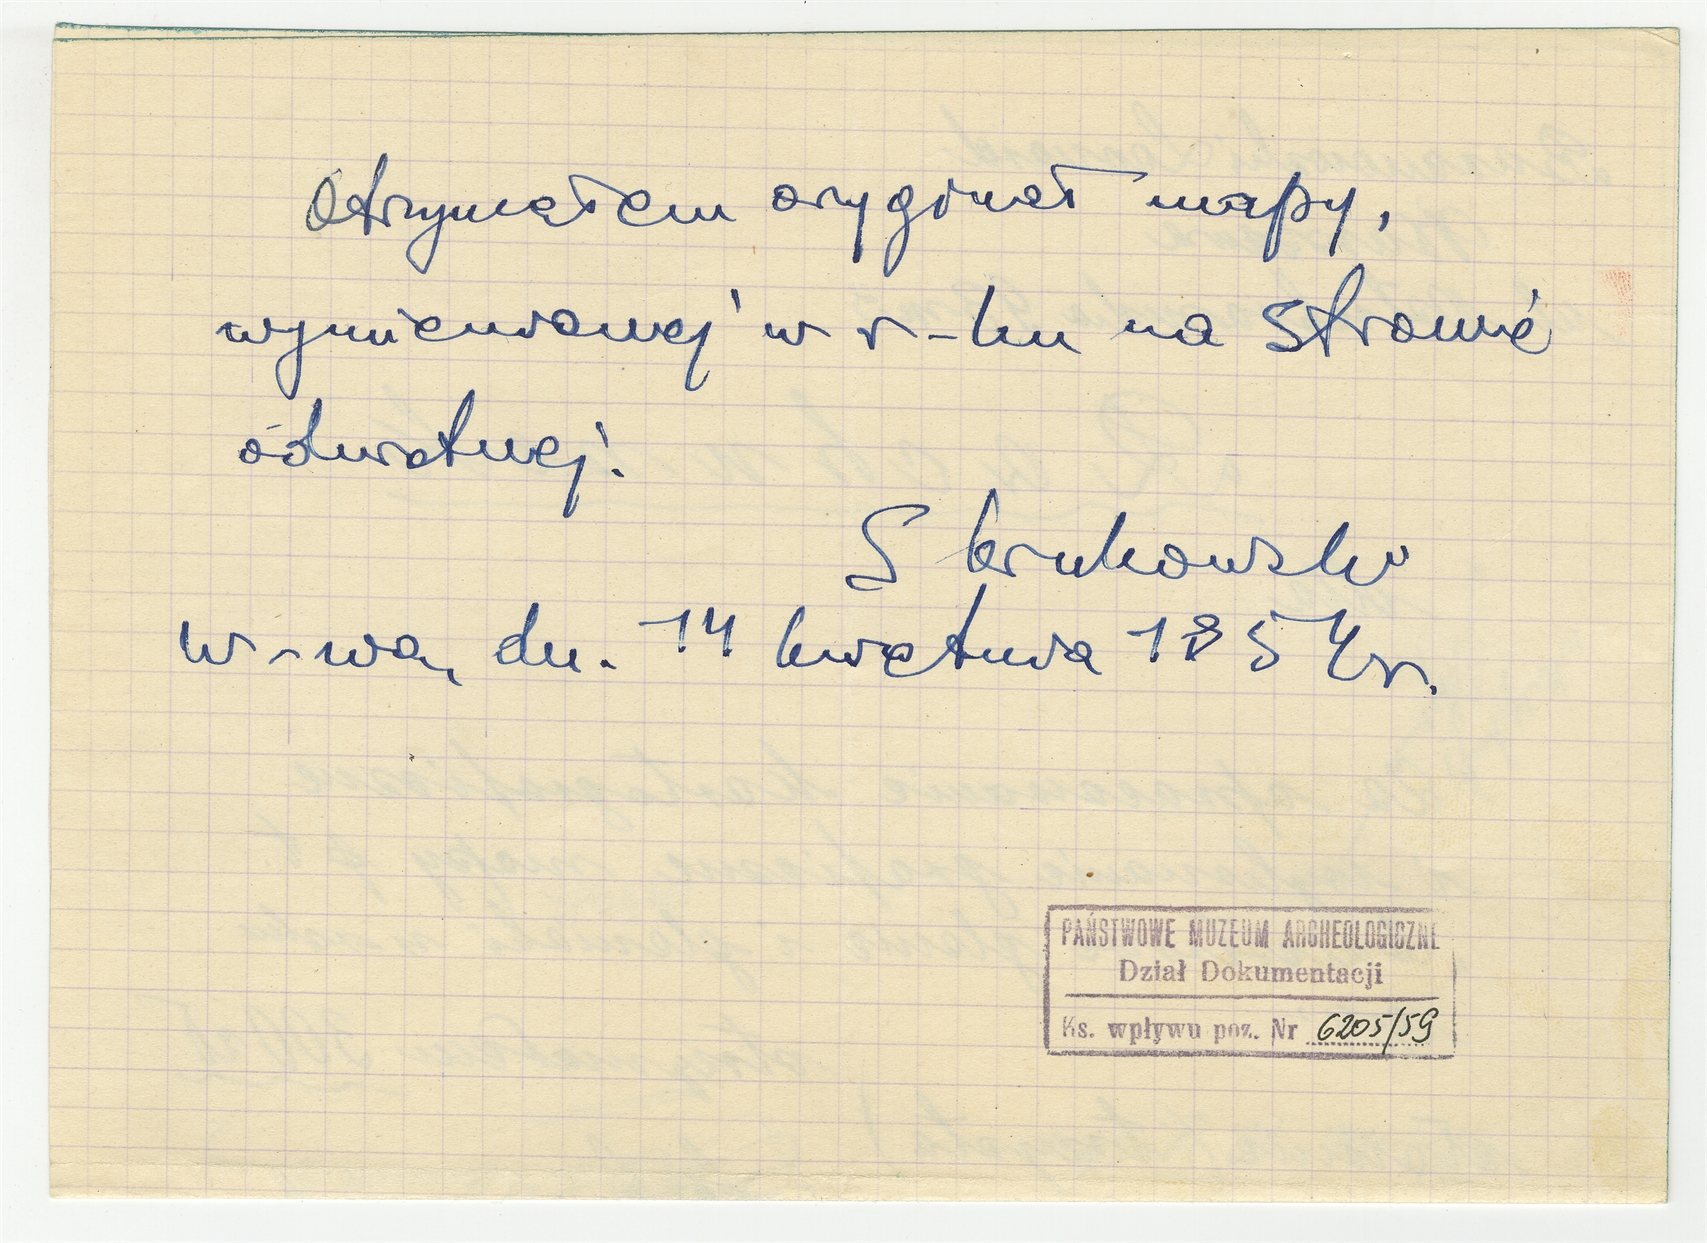 Otrzymałem oryginał mapy,
wymienionej w r-ku na stronie
odwrotnej.
S Krukowski
W-wa, dn. 14 kwietnia 1954 r.
PAŃSTWOWE MUZEUM ARCHEOLOGICZNE
Dział Dokumentacji
Ks. wpływu poz. Nr 6205/59